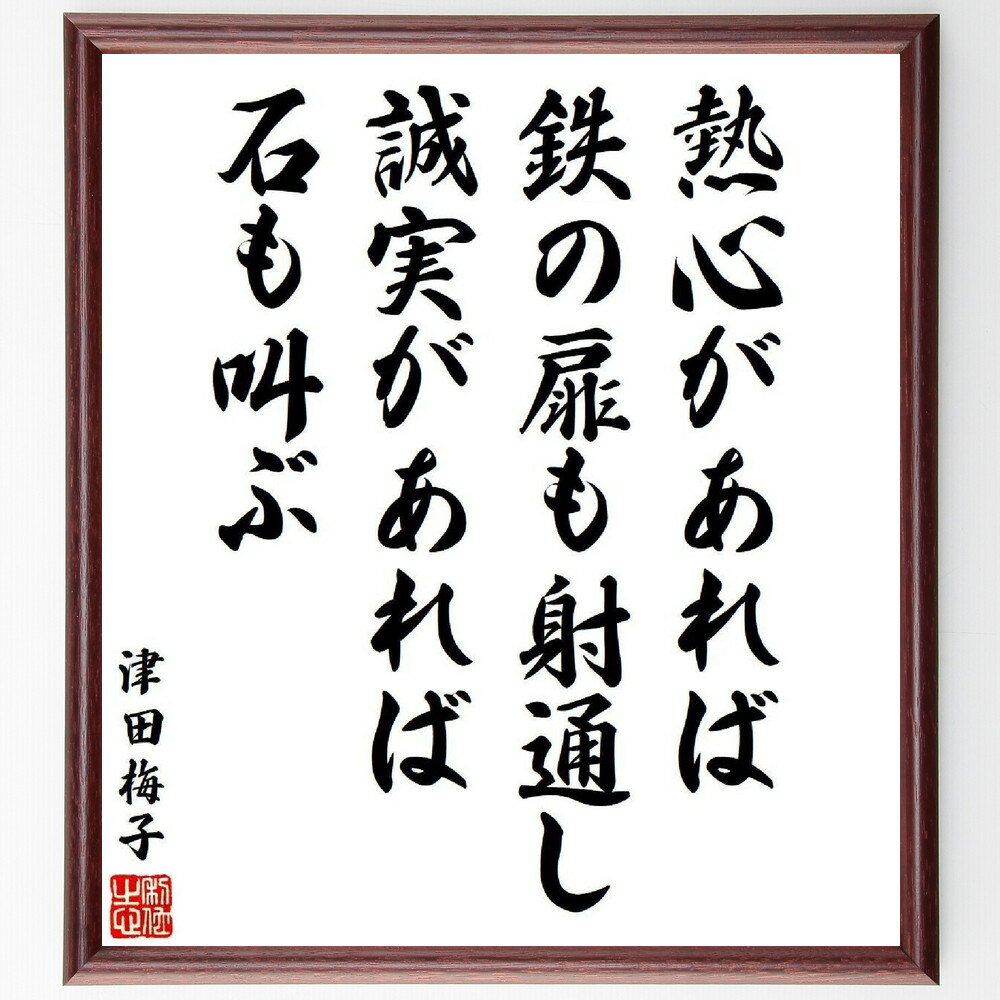 熱心があれば
鉄の扉も射通し
誠実があれば
石も叫ぶ
津田梅子